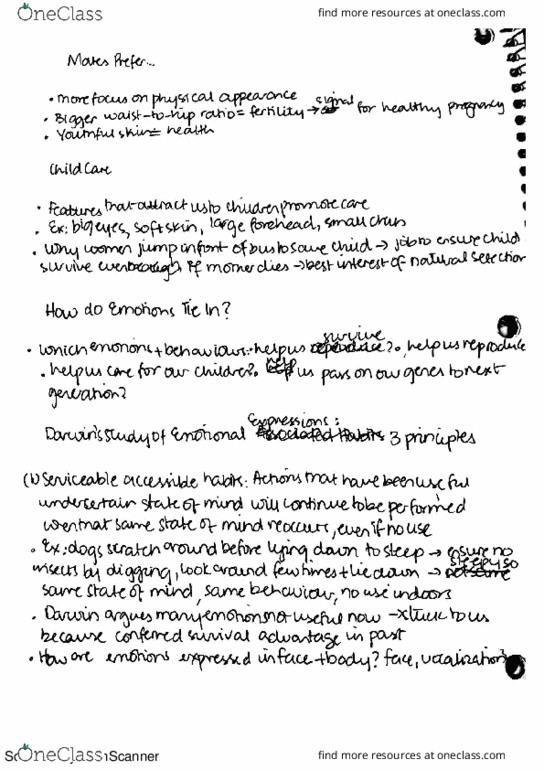 OneClass
find more resources at oneclass.com
Mates Prefer...
• more focus on physical appearance
• Bigger waist-to-hip ratio = fertility → signal for healthy pregnancy
• Youthful skin = health
Child Care
• Features that attract us to children promote care
• Ex: big eyes, soft skin, large forehead, small chins
• Why women jump in front of bus to save child → job to ensure child
survive even though if mother dies → best interest of natural selection
How do Emotions Tie In?
• which emotions + behaviours: help us survive?, help us reproduce
• help us care for our children?, help us pass on our genes to next
generation?
Darwin's study of Emotional Expressions: 3 principles
(1) Serviceable accessible habits: Actions that have been useful
under certain state of mind will continue to be performed
when that same state of mind reoccurs, even if no use
• Ex: dogs scratch around before lying down to sleep → ensure no
insects by digging, look around few times + lie down → sleepy so
same state of mind, same behaviour, no use indoors
• Darwin argues many emotions not useful now → stuck to us
because conferred survival advantage in past
• How are emotions expressed in face + body? face, vocalizations
OneClass Scanner
find more resources at oneclass.com